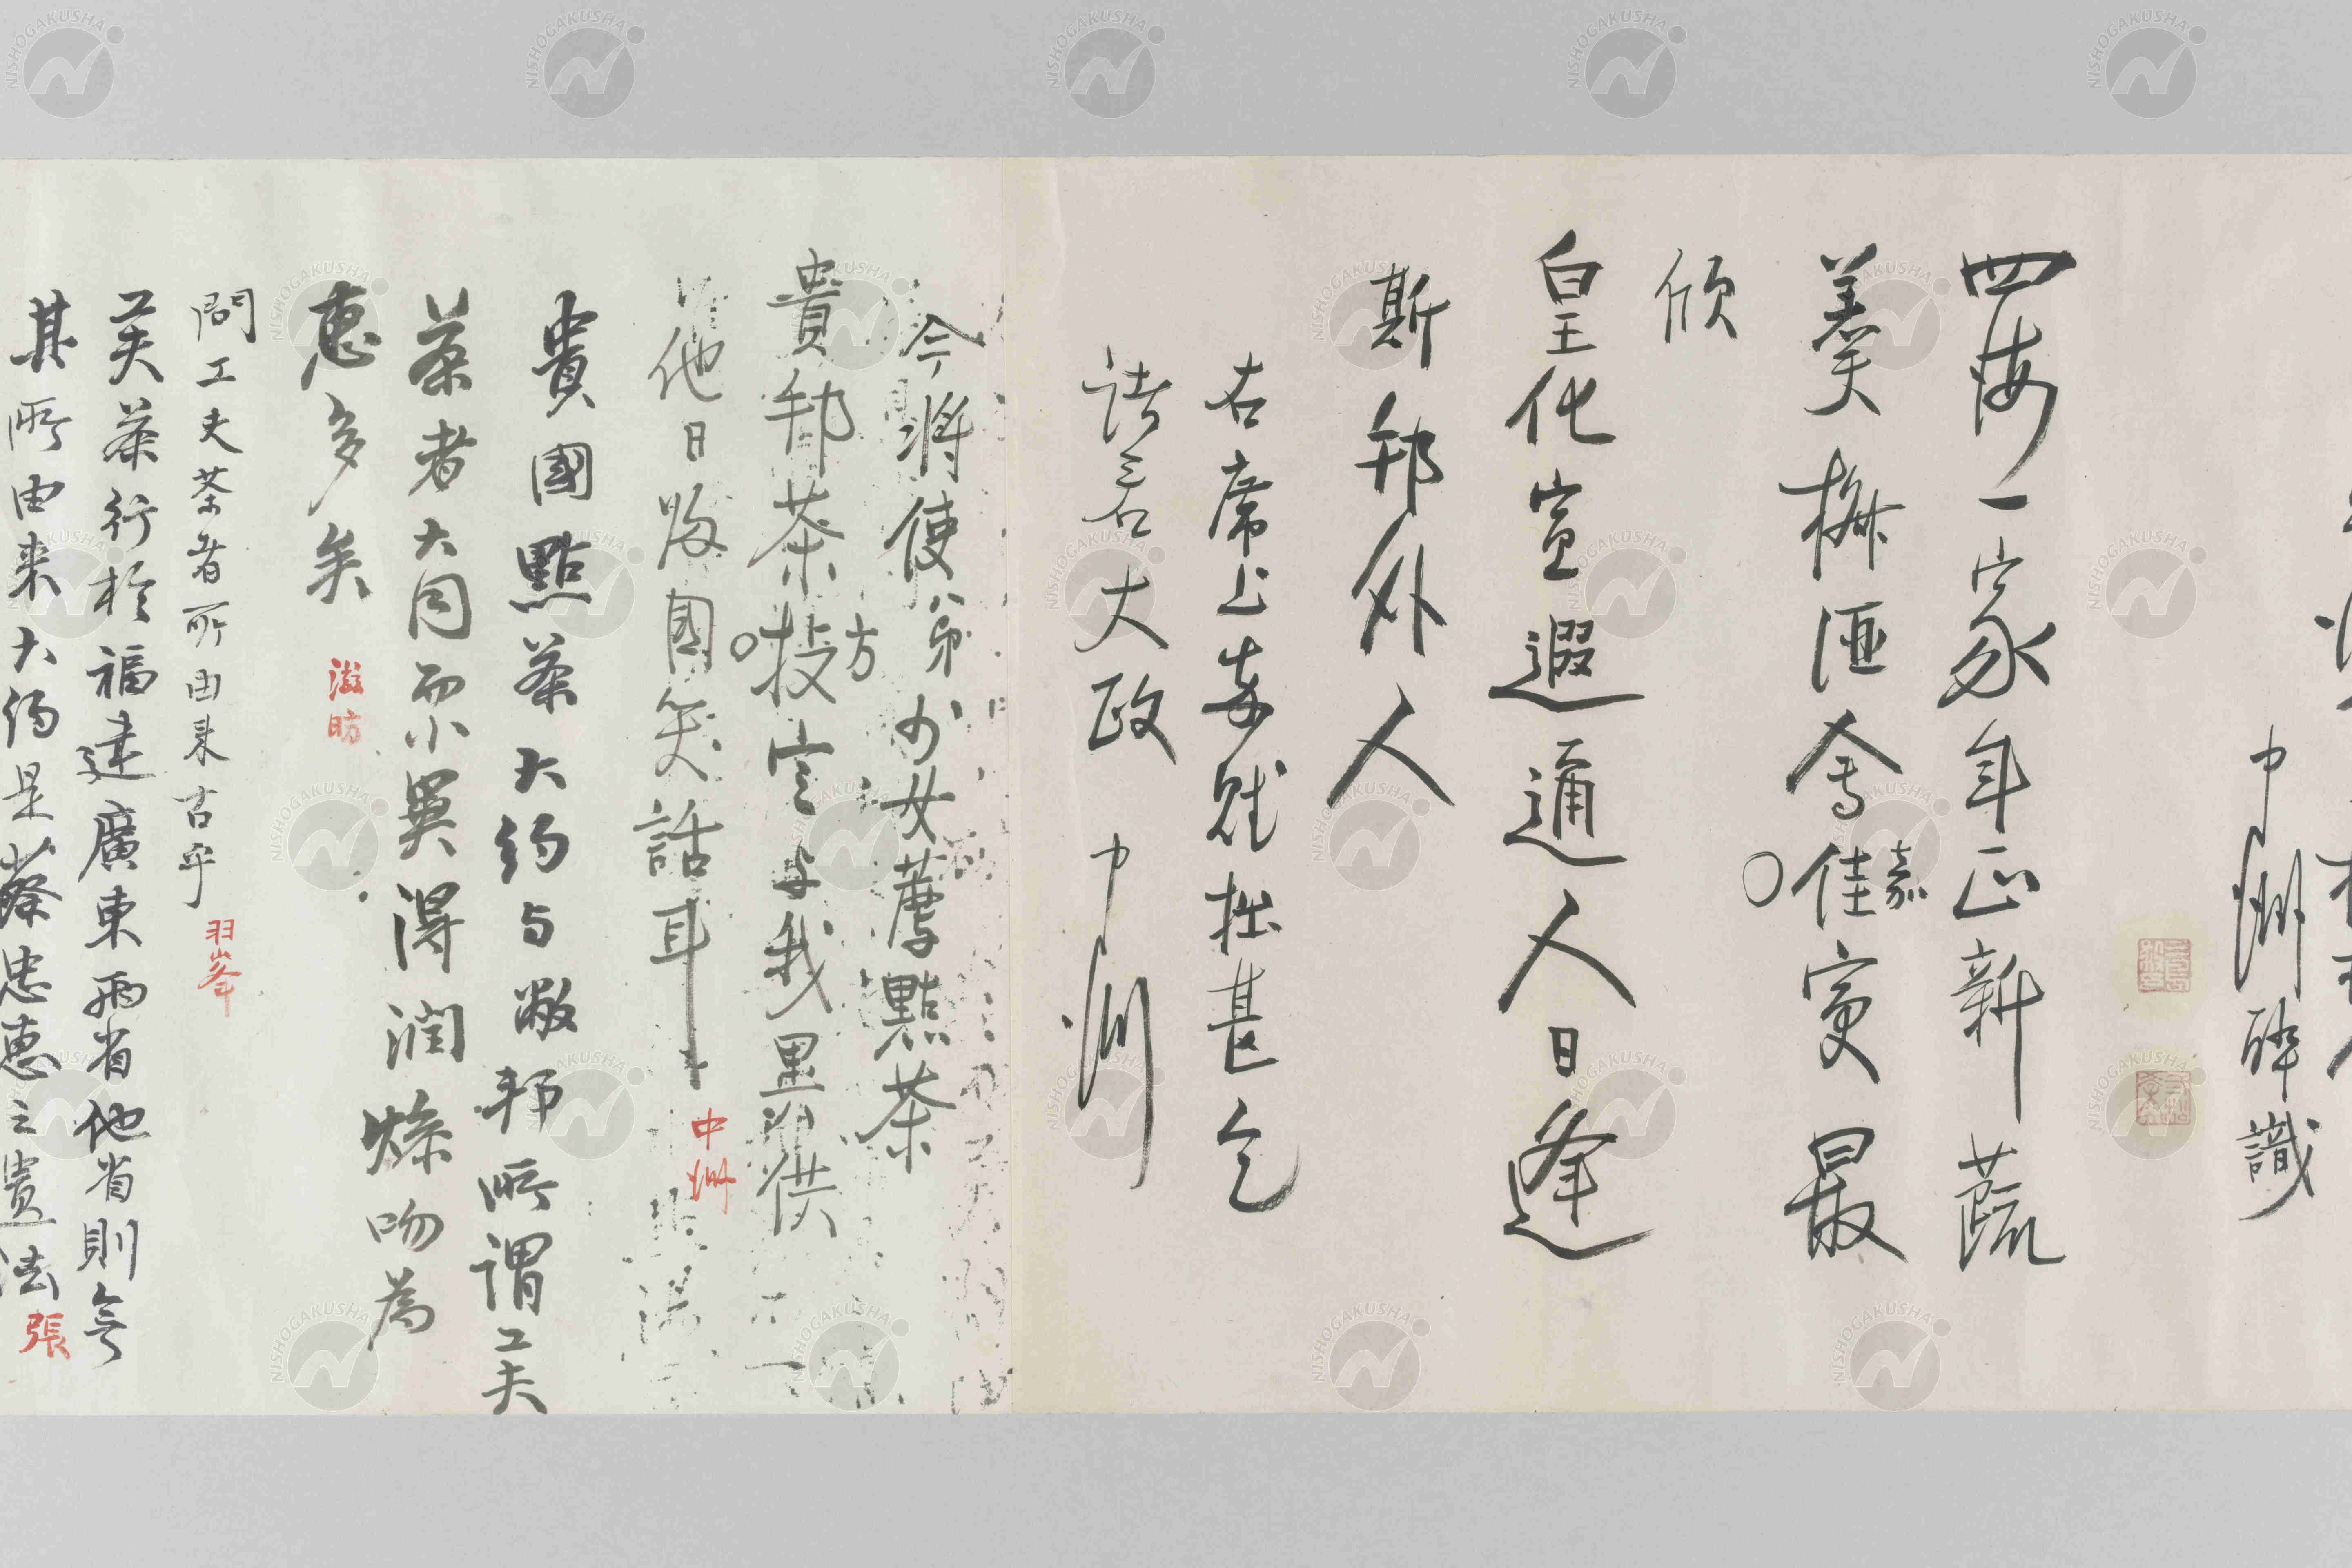 中洲酔識
四海一家年正新蔬
羹梅酒會佳賓最
嘉
欣
皇化宣遐通人日逢
斯邦外人
右席上奉賦拙甚乞
諸君大政 中洲
今將使弟少女薦點茶
貴邦茶投 我 供
方
他日 國笑話耳 中洲
貴國點茶大約与敝邦所謂工夫
茶者大同而小異得潤燥吻為
惠多矣 滋昉
問工夫茶者所由来古乎 羽峯
工夫茶行於福建廣東兩省他省則無
其所由来大約是蔡忠惠之遺法 張
NISHOGAKUSHA